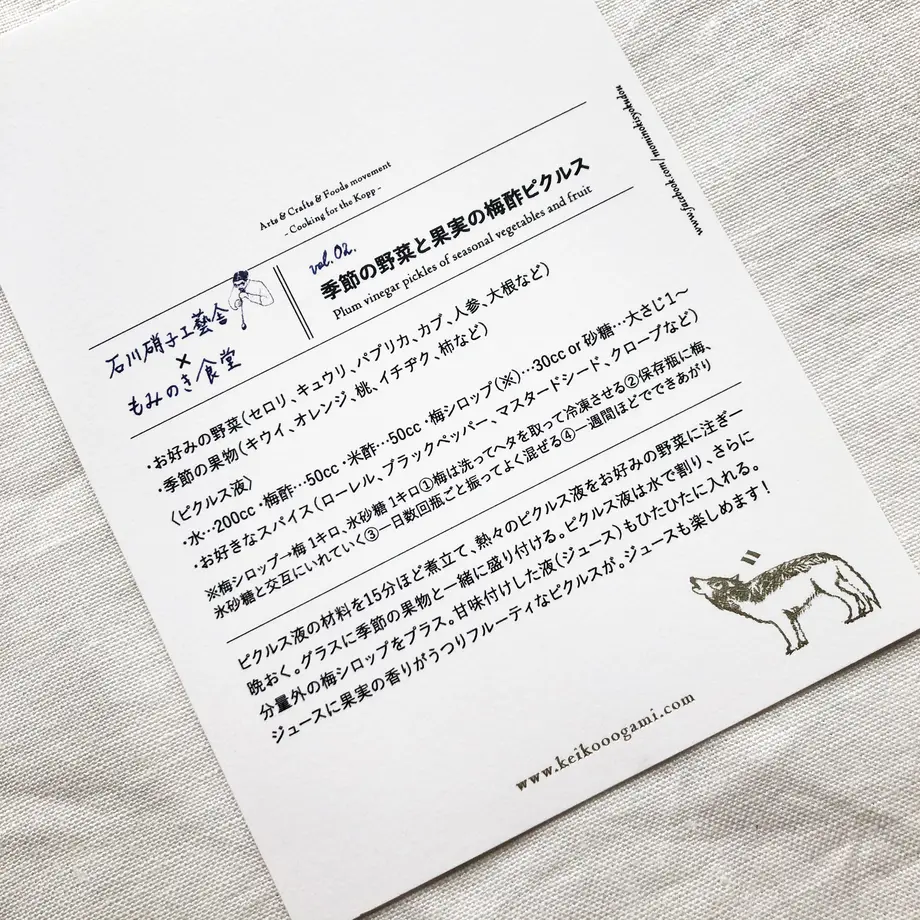 Arts & Crafts & Foods movement
- Cooking for the Kopp -
石川硝子工藝舎
×
もみのき食堂
vol.02.
季節の野菜と果実の梅酢ピクルス
Plum vinegar pickles of seasonal vegetables and fruit
・お好みの野菜(セロリ、キュウリ、パプリカ、カブ、人参、大根など)
・季節の果物(キウイ、オレンジ、桃、イチヂク、柿など)
〈ピクルス液〉
・水…200cc・梅酢…50cc・米酢…50cc・梅シロップ(※)…30cc or 砂糖…大さじ1〜
・お好きなスパイス(ローレル、ブラックペッパー、マスタードシード、クローブなど)
※梅シロップ→梅 1キロ、氷砂糖 1キロ①梅は洗ってヘタを取って冷凍させる②保存瓶に梅、
氷砂糖と交互にいれていく③一日数回瓶ごと振ってよく混ぜる④一週間ほどでできあがり
ピクルス液の材料を15分ほど煮立て、熱々のピクルス液をお好みの野菜に注ぎ一
晩おく。グラスに季節の果物と一緒に盛り付ける。ピクルス液は水で割り、さらに
分量外の梅シロップをプラス。甘味付けした液(ジュース)もひたひたに入れる。
ジュースに果実の香りがうつりフルーティなピクルスが。ジュースも楽しめます!
www.keikooogami.com
www.facebook.com/mominokisyokudou